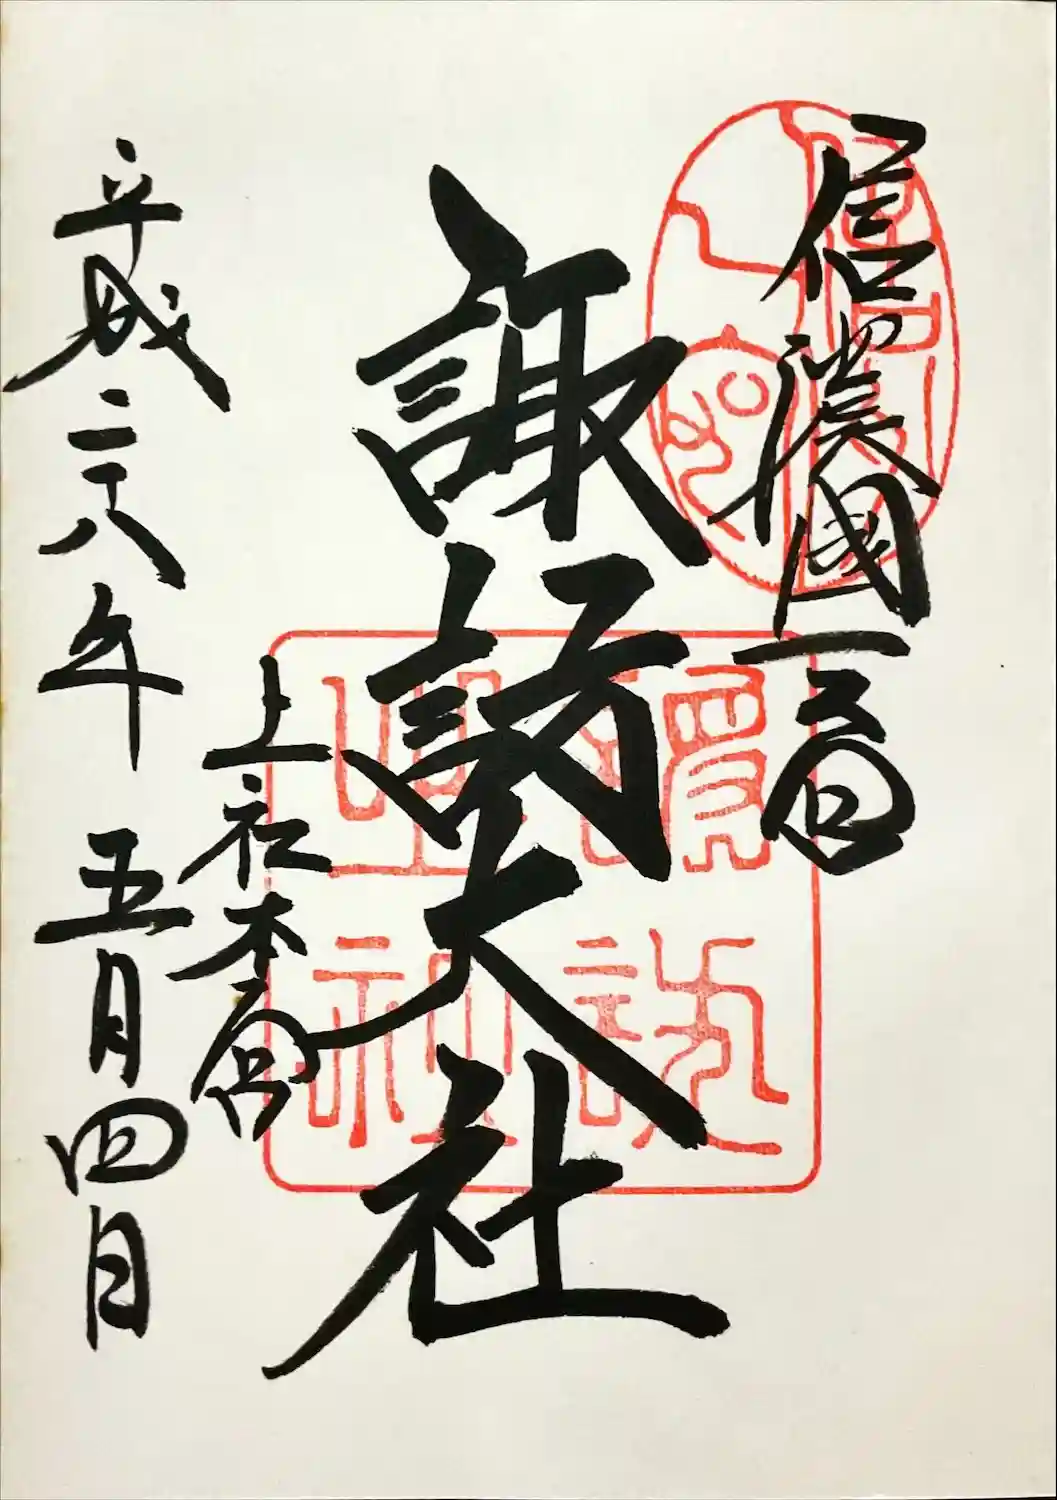 信濃國一之宮
諏訪大社
上社本宮
平成二十八年 五月四日